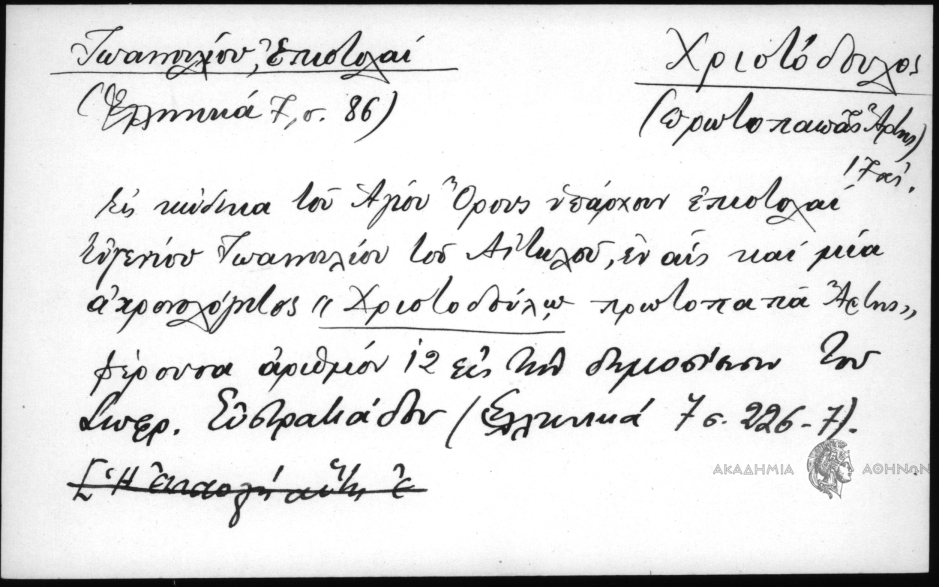 Ἰωαννουλίου, Ἐπιστολαί
(Ἑλληνικά 7, σ. 86)
Χριστόδουλος
(πρωτοπαπᾶς Ἄρτης)
17 αἰ.
Εἰς κώδικα τοῦ Ἁγίου Ὄρους ὑπάρχουν ἐπιστολαί
Εὐγενίου Ἰωαννουλίου τοῦ Αἰτωλοῦ, ἐν αἷς καί μία
ἀχρονολόγητος « Χριστοδούλῳ πρωτοπαπᾷ Ἄρτης»
φέρουσα ἀριθμόν 12 εἰς τήν δημοσίευσιν τοῦ
Σωφρ. Εὐστρατιάδου (Ἑλληνικά 7 σ. 226-7).
[Ἡ ἐπιστολή αὕτη ἐ
ΑΚΑΔΗΜΙΑ ΑΘΗΝΩΝ